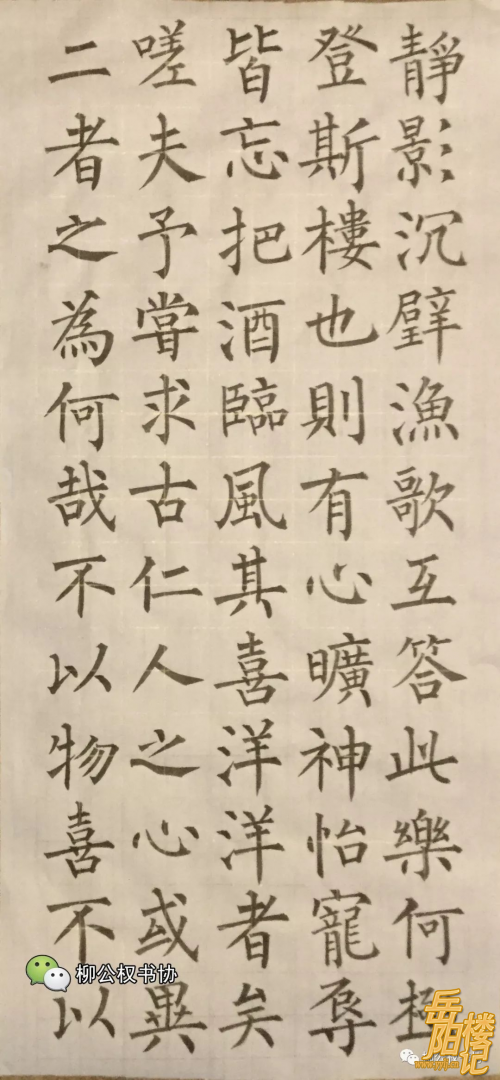 靜影沉璧漁歌互答此樂何極
登斯樓也則有心曠神怡寵辱
皆忘把酒臨風其喜洋洋者矣
嗟夫予嘗求古仁人之心或異
二者之為何哉不以物喜不以
柳公权书协
岳阳楼记